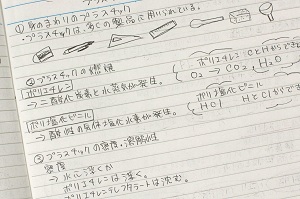 プラスチック
① 身のまわりのプラスチック
・プラスチックは、多くの製品に用いられている。
② プラスチックの燃焼
ポリエチレン
→二酸化炭素と水蒸気が発生。
ポリエチレン CとHからできる
O₂ → CO₂, H₂O
ポリ塩化ビニル
→酸性の気体塩化水素が発生。
ポリ塩化ビニル
(HCl) HとClができる
③ プラスチックの密度・溶解性
密度
→水に浮くか
ポリエチレンは浮く。
ポリエチレンテレフタラートは沈む。